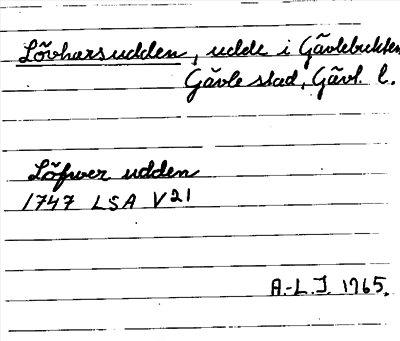 Lövharsudden, udde i Gävlebukten
Gävle stad, Gävl. l.
Löfwer udden
1747 LSA V21
A.-L. J. 1965.